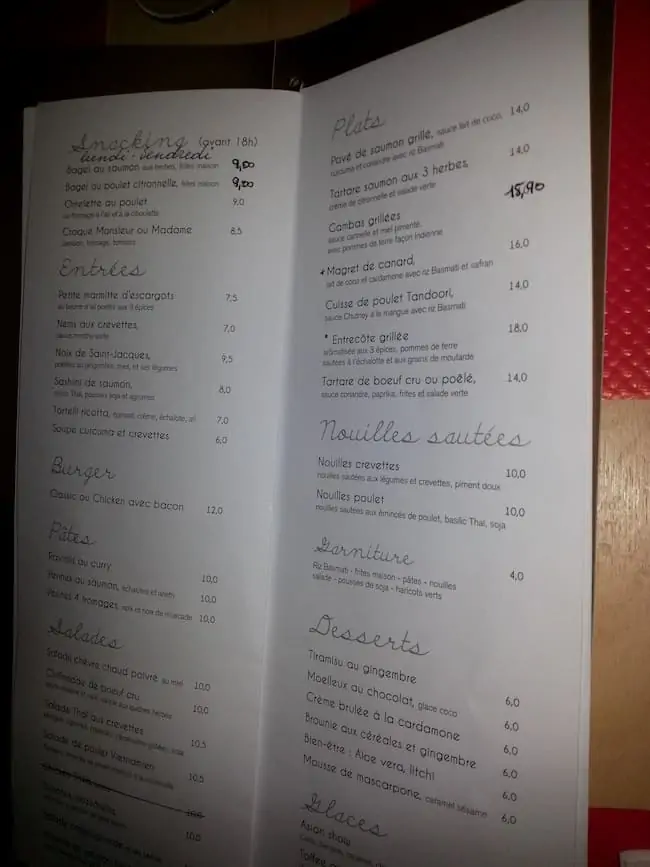 Snacking (avant 18h)
lundi - vendredi
Bagel au saumon aux herbes, frites maison 9,50
Bagel au poulet citronnelle, frites maison 9,50
Omelette au poulet 9,0
au fromage à l'ail et à la ciboulette
Croque Monsieur ou Madame 8,5
jambon, fromage, tomates
Entrées
Petite marmitte d'escargots 7,5
au beurre d'ail poêlés aux 3 épices
Nems aux crevettes, 7,0
sauce menthe verte
Noix de Saint-Jacques, 9,5
poêlées au gingembre, miel, et ses légumes
Sashimi de saumon, 8,0
Thaï, pousses soja et agrumes
Tortelli ricotta, crème, échalote, ail 7,0
Soupe curcuma et crevettes 6,0
Burger
Classic ou Chicken avec bacon 12,0
Pâtes
Raviolis au curry 10,0
Pennes au saumon, échalotes et aneth 10,0
Pennes 4 fromages, noix et noix de muscade 10,0
Salades
Salade chèvre chaud poivré au miel 10,0
Chiffonade de boeuf cru 10,0
Salade Thaï aux crevettes 10,5
Salade de poulet Vietnamien 10,5
10,0
10,0
Plats
Pavé de saumon grillé, sauce lait de coco, 14,0
curcuma et coriandre avec riz Basmati
Tartare saumon aux 3 herbes, 14,0
crème de citronnelle et salade verte
Gambas grillées 15,90
sauce cannelle et miel pimenté,
avec pommes de terre façon Indienne
* Magret de canard, 16,0
lait de coco et cardamone avec riz Basmati et safran
Cuisse de poulet Tandoori, 14,0
sauce Chutney à la mangue avec riz Basmati
* Entrecôte grillée 18,0
aromatisée aux 3 épices, pommes de terre
sautées à l'échalotte et aux grains de moutarde
Tartare de boeuf cru ou poêlé, 14,0
sauce coriandre, paprika, frites et salade verte
Nouilles sautées
Nouilles crevettes 10,0
nouilles sautées aux légumes et crevettes, piment doux
Nouilles poulet 10,0
nouilles sautées aux émincés de poulet, basilic Thaï, soja
Garniture
Riz Basmati - frites maison - pâtes - nouilles 4,0
salade - pousses de soja - haricots verts
Desserts
Tiramisu au gingembre 6,0
Moelleux au chocolat, glace coco 6,0
Crème brulée à la cardamone 6,0
Brownie aux céréales et gingembre 6,0
Bien-être : Aloe vera, litchi 6,0
Mousse de mascarpone, caramel sésame 6,0
Glaces
Asian show
Toffee